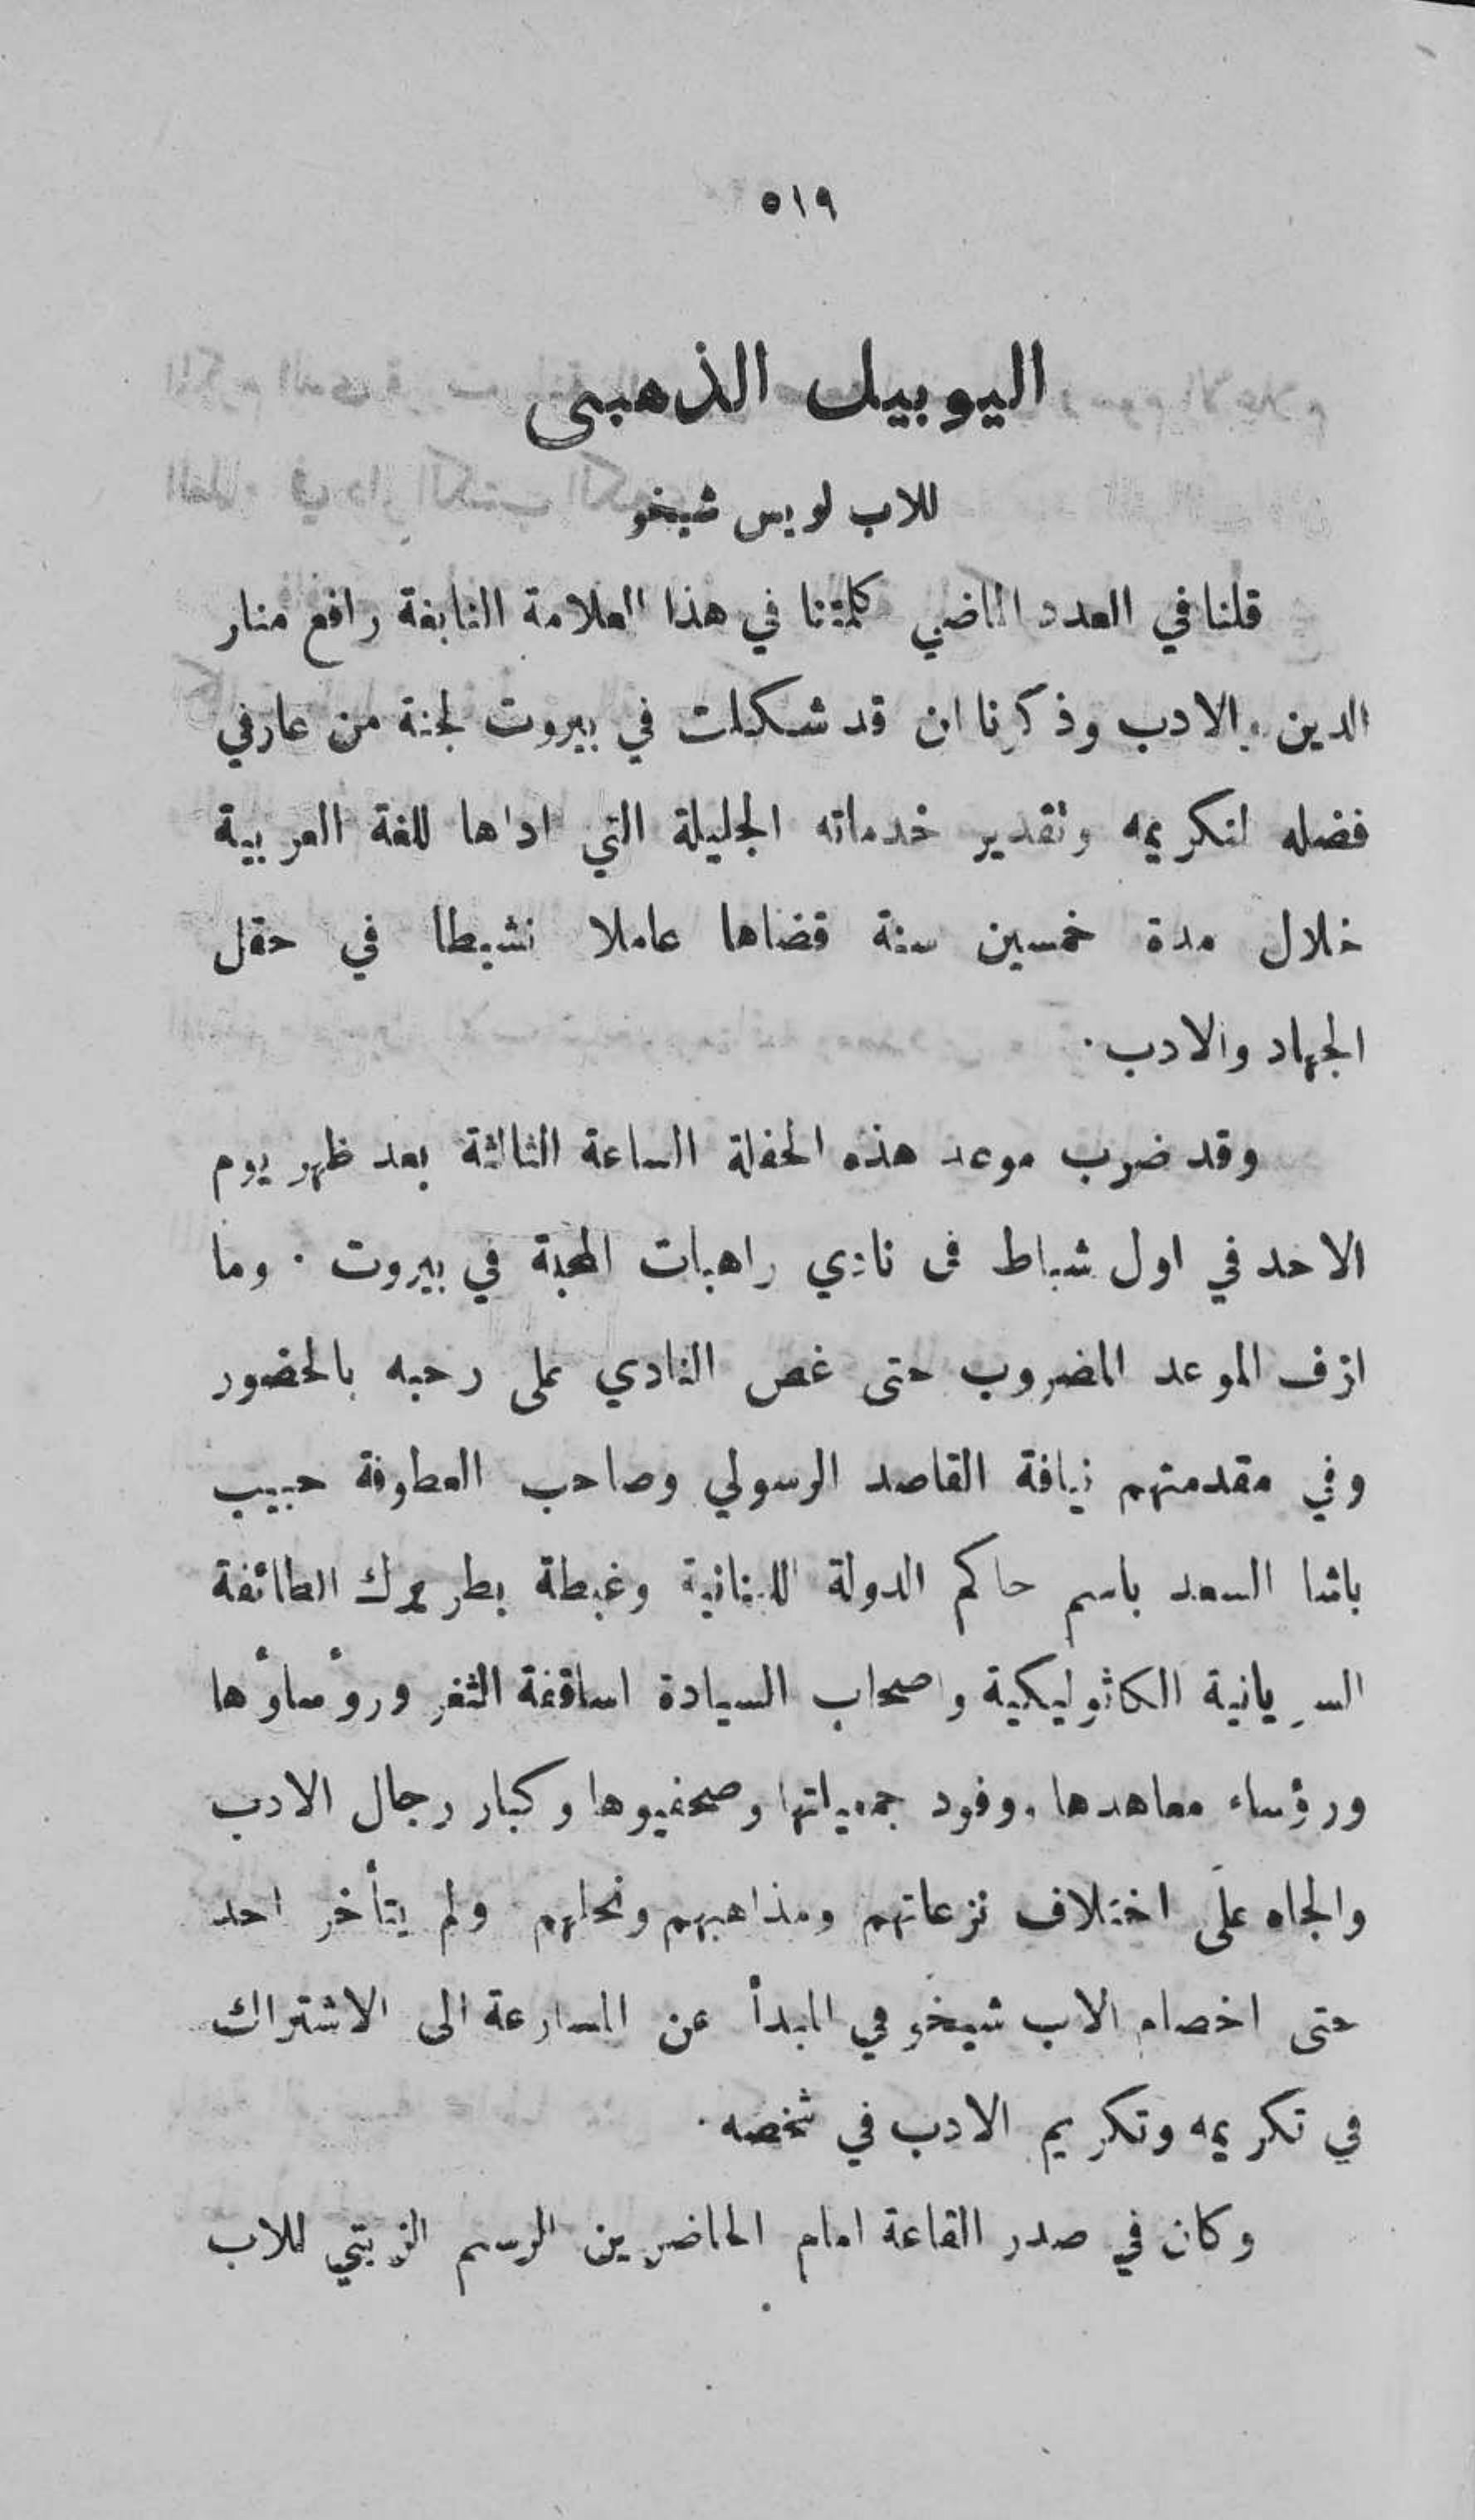 ٥١٩
اليوبيل الذهبى
للاب لويس شيخو
قلنا في العدد الماضي كلمتنا في هذا العلامة النابغة رافع منار
الدين والادب وذكرنا ان قد شكلت في بيروت لجنة من عارفي
فضله لتكريمه وتقدير خدماته الجليلة التي اداها للغة العربية
خلال مدة خمسين سنة قضاها عاملا نشيطا في حقل
الجهاد والادب ·
وقد ضرب موعد هذه الحفلة الساعة الثالثة بعد ظهر يوم
الاحد في اول شباط فى نادي راهبات المحبة في بيروت · وما
ازف الموعد المضروب حتى غص النادي على رحبه بالحضور
وفي مقدمتهم نيافة القاصد الرسولي وصاحب العطوفة حبيب
باشا السعد باسم حاكم الدولة اللبنانية وغبطة بطريرك الطائفة
السريانية الكاثوليكية واصحاب السيادة اساقفة الثغر ورؤساؤها
ورؤساء معاهدها ووفود جمعياتها وصحفيوها وكبار رجال الادب
والجاه على اختلاف نزعاتهم ومذاهبهم ونحلهم ولم يتأخر احد
حتى اخصام الاب شيخو في المبدأ عن المسارعة الى الاشتراك
في تكريمه وتكريم الادب في شخصه ·
وكان في صدر القاعة امام الحاضرين الرسم الزيتي للاب